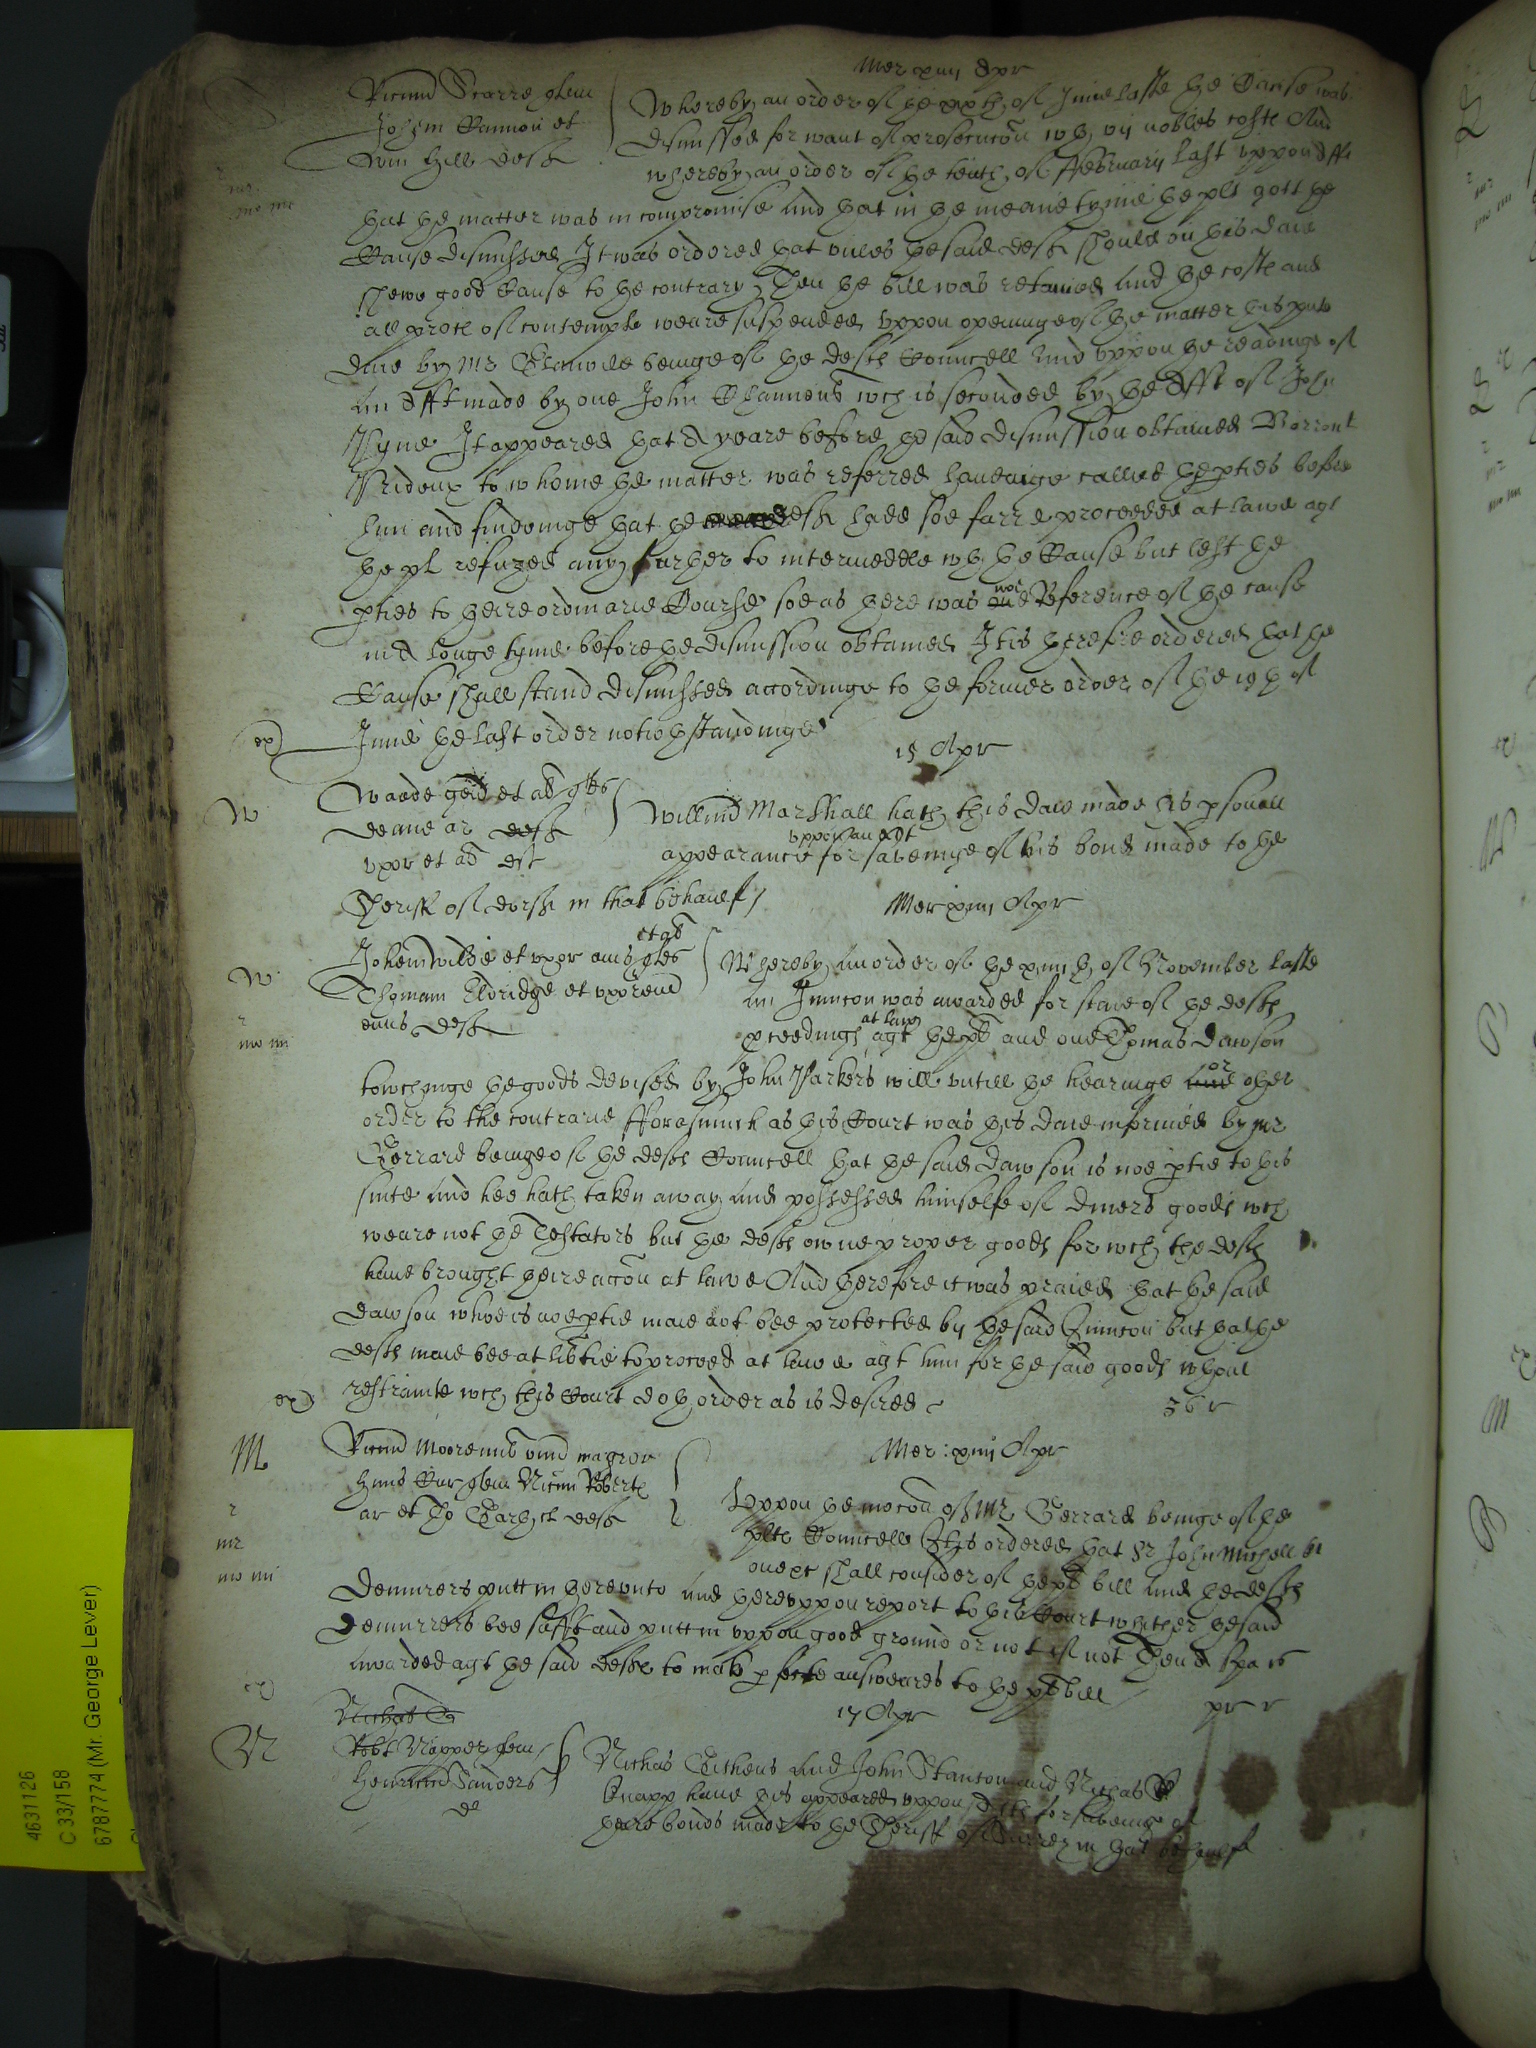 Mer xviii Apr
Ricum Starre quer
Johem Cannon et
Wm Hill deft
Whereby an order of the xixth of June laste the Cause was
dismissed for want of prosecucon wth vii nobles coste And
whereby an order of the tenth of ffebruary last uppon Affi
that the matter was in compromise And that in the meane tyme the plt gott the
Cause dismissed It was ordered that unles the said deft should on this daie
shewe good Cause to the contrary Then the bill was retained And the coste and
all proces of contempte weare suspended uppon openinge of the matter this pnte
daie by Mr Glanvile beinge of the defts Councell And uppon the readinge of
An Afft made by one John Channons wch is seconded by the Afft of John
Pyne It appeared that A yeare before the said dismission obtained
Prideux to whome the matter was referred haveinge called the pties before
him and findeinge that the deft hadd soe farre proceeded at lawe agt
the pl refuzed any further to intermeddle wth the Cause but left the
pties to theire ordinarie Course soe as there was noe Reference of the cause
in A longe tyme before the dismission obtained It is therefore ordered that the
Cause shall stand dismissed accordinge to the former order of the 19th of
June the last order notwthstandinge
ex
15 Apr
W
Waade et al qtes
Deane ar deft
uxor et al
Willim Marshall hath this daie made his psonall
uppon an Att
appearance for saveinge of his bond made to the
Sheriff of in that behaulf
Mer xviii Apr
W
et al
Johem Wilde et uxor eius qtes
Thomam Eldridge et uxorem
eius deft
mo mi
Whereby An order of the of November laste
An Iniuncon was awarded for staie of the defts
at law
pceedings agt the plt and one Thomas Dawson
towchinge the goods devised by John Parkers will untill the hearinge or other
order to the contrarie fforasmuch as this Court was this daie informed by Mr
Gerrard beinge of the defts Councell that the said Dawson is noe ptie to this
suite And hee hath taken away And possessed himselfe of divers goods wch
weare not the Testators but the defts owne proper goods for wch the defts
have brought theire accon at lawe And therefore it was praied that the said
Dawson whoe is noe ptie maie not bee protected by the said Iniuncon but that the
defts maie bee at libtie to proceed at lawe agt him for the said goods wthout
restrainte wch this Court doth order as is desired
ex
M
Mer: xviii Apr
mr
mo mi
Uppon the mocon of Mr Gerrard beinge of the
plts Councell It is ordered that Sr John Michell kt
one &c shall consider of the plts bill And the defts
Demurers putt in thereunto And thereuppon report to this Court whither the said
Demurrers bee suffit and putt in uppon good ground or not if not Then A spa is
Awarded agt the said defts to make pfecte answeares to the plts bill
ex
17 Apr
N
Robt Napper quer
Henricum Sanders
de
Nichas and John Stanton and Nichas
Knapp have this appeared uppon Atts for saveinge of
theire bonds made to the Sheriff of Surrey in that behaulf
4631126
C 33/158
6787774 (Mr. George Lever)